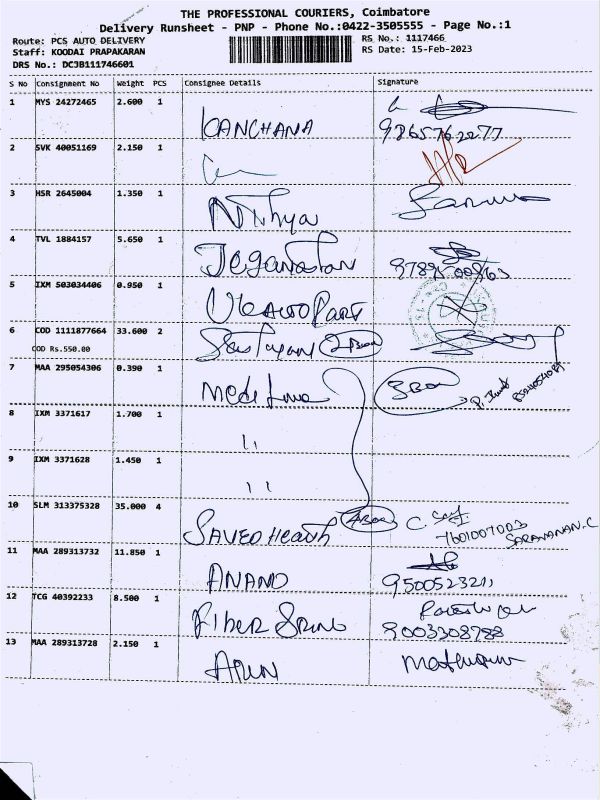 THE PROFESSIONAL COURIERS, Coimbatore
Delivery Runsheet - PNP - Phone No.:0422-3505555 - Page No.:1
Route: PCS AUTO DELIVERY
RS No.: 1117466
Staff: KOODAI PRAPAKARAN
RS Date: 15-Feb-2023
DRS No.: DCJB111746601
S No Consignment No Weight PCS Consignee Details Signature
1 MYS 24272465 2.600 1 KANCHANA
9865762277
2 SVK 40051169 2.150 1
3 HSR 2645004 1.350 1 Nithya
4 TVL 1884157 5.650 1 Jeganathan
5 IXM 503034406 0.950 1 UK AUTO PART
6 COD 1111877664 33.600 2
COD Rs.550.00
7 MAA 295054306 0.390 1 3 Box
8 IXM 3371617 1.700 1 11
9 IXM 3371628 1.450 1 11
10 SLM 313375328 35.000 4 SAVEO Health 4 Box
7601007003
SARAVANAN.C
11 MAA 289313732 11.850 1 ANAND 9500523211
12 TCG 40392233 8.500 1 Fiber
9003308788
13 MAA 289313728 2.150 1 ARUN